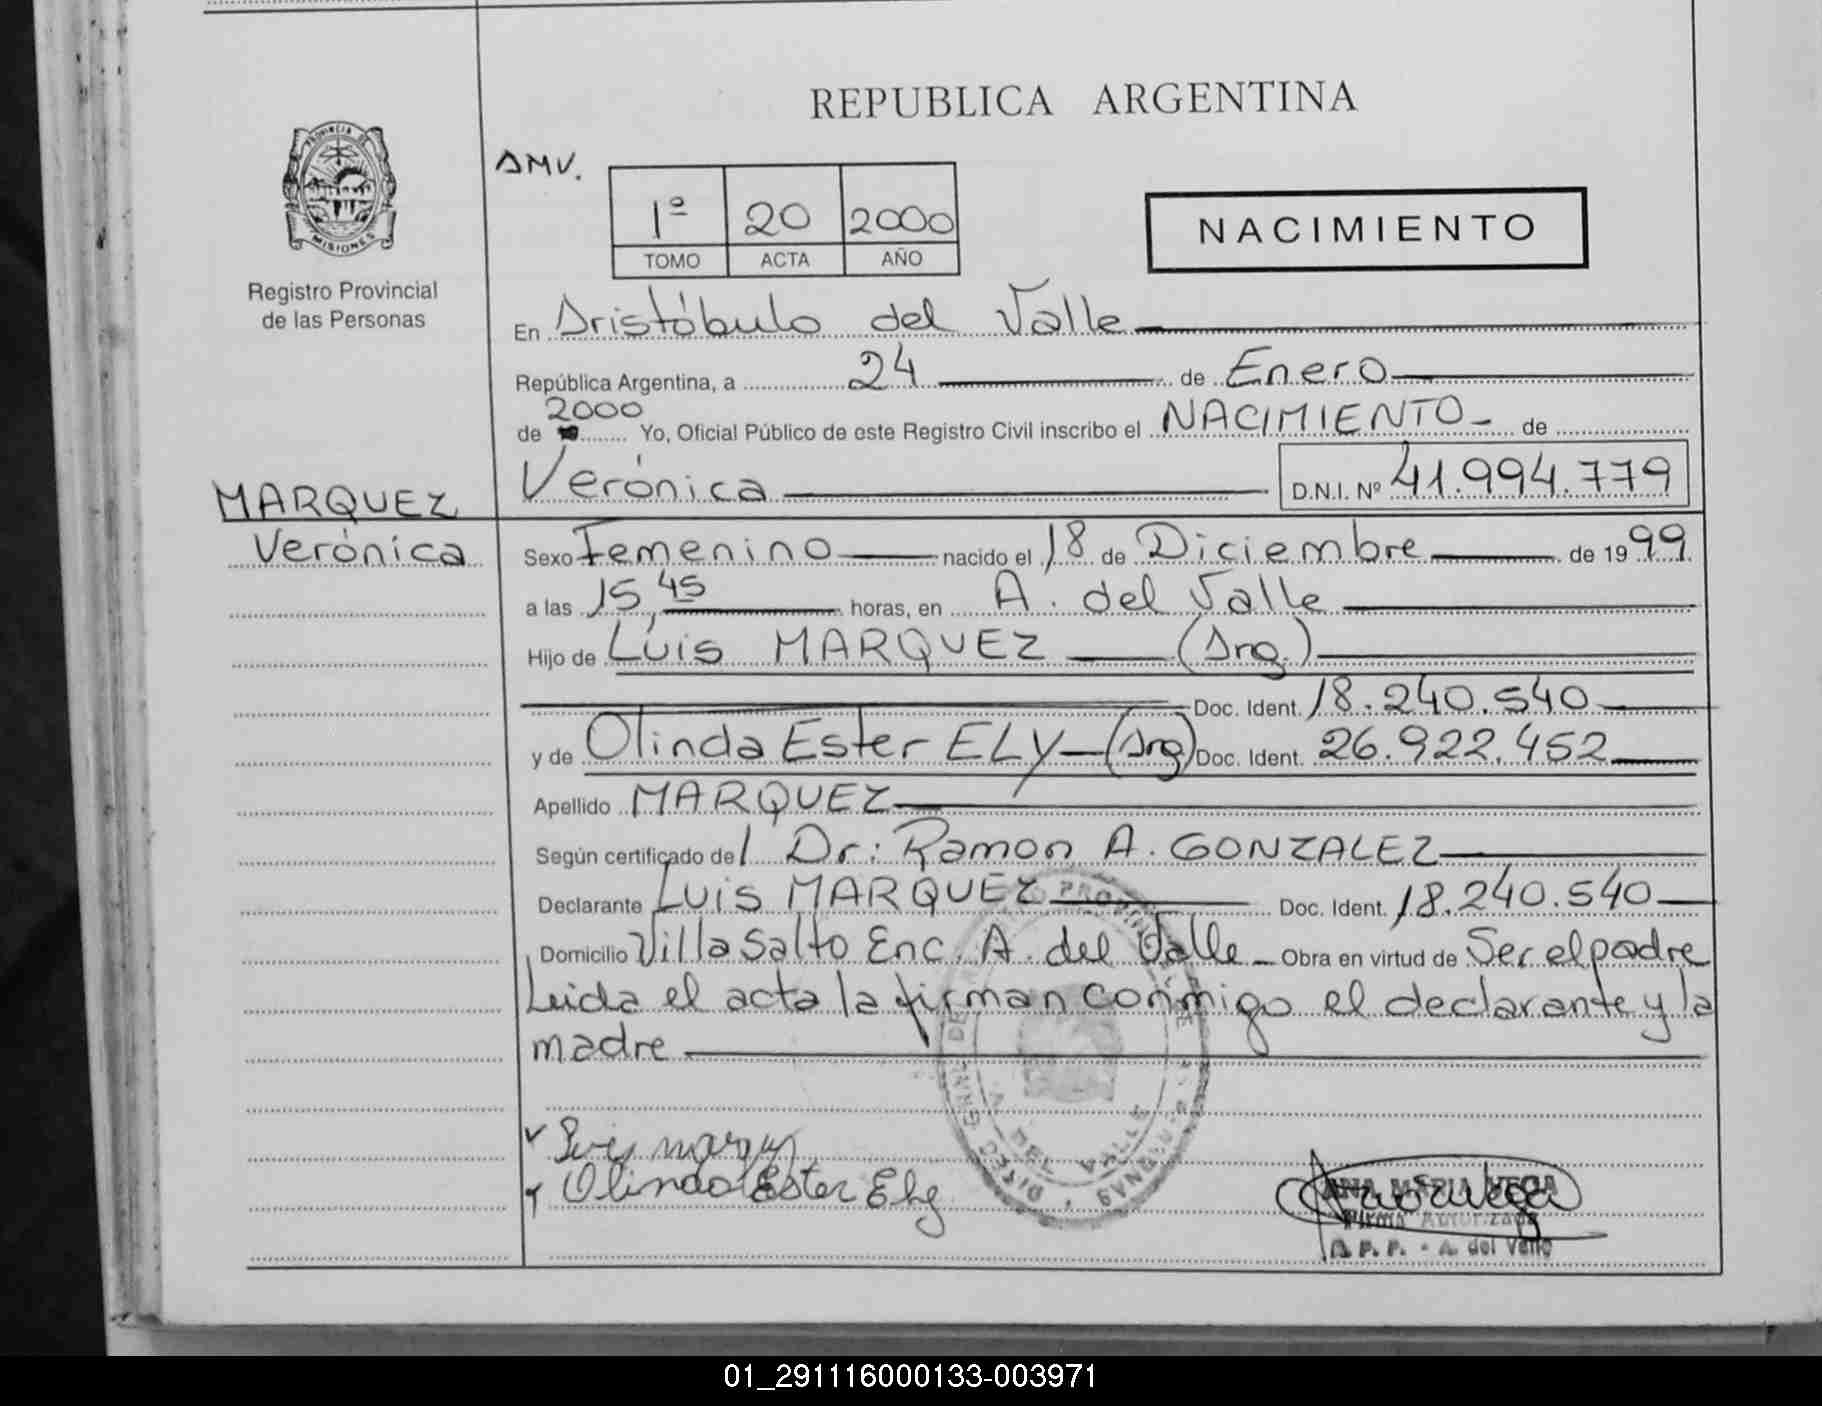 REPUBLICA ARGENTINA
PROVINCIA DE
MISIONES
Registro Provincial
de las Personas
AMV.
1º 20 2000
TOMO ACTA AÑO
NACIMIENTO
En Aristóbulo del Valle
República Argentina, a 24 de Enero
2000
de Yo, Oficial Público de este Registro Civil inscribo el NACIMIENTO de
Verónica D.N.I. Nº 41.994.779
MARQUEZ
Verónica
Sexo Femenino nacido el 18 de Diciembre de 1999
a las 15,45 horas, en A. del Valle
Hijo de Luis MARQUEZ (Arg.)
Doc. Ident. 18.240.540
y de Olinda Ester ELY (Arg) Doc. Ident. 26.922.452
Apellido MARQUEZ
Según certificado del Dr: Ramon A. GONZALEZ
Declarante Luis MARQUEZ Doc. Ident. 18.240.540
Domicilio Villa Salto Enc. A. del Valle Obra en virtud de Ser el padre
Leida el acta la firman conmigo el declarante y la
madre
A. DEL VALLE
Olinda Ester Ely
ANA MARIA VEGA
Firma Autorizada
R. P. P. - A. del Valle
01_291116000133-003971